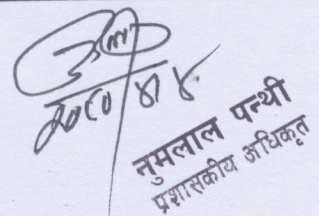 २०८०/४/४
नुमलाल पन्थी
प्रशासकीय अधिकृत